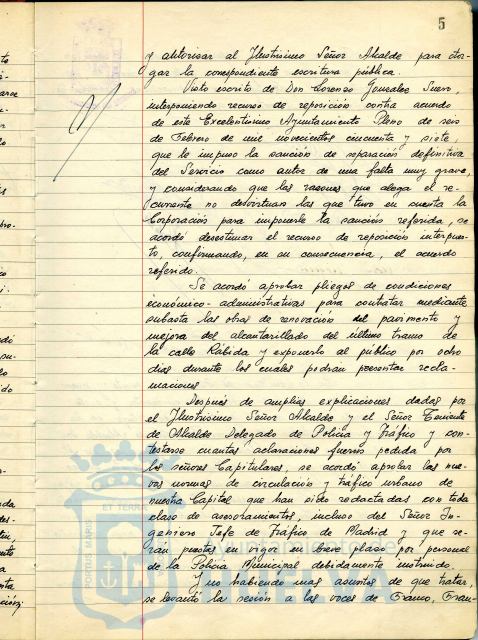 5
y autorizar al Ilustrísimo Señor Alcalde para otor-
gar la correspondiente escritura pública.
Visto escrito de Don Lorenzo Gonzalez Suero,
interponiendo recurso de reposición contra acuerdo
de este Excelentísimo Ayuntamiento Pleno de seis
de Febrero de mil novecientos cincuenta y siete,
que le impuso la sanción de separación definitiva
del Servicio como autor de una falta muy grave,
y considerando que las razones que alega el re-
currente no desvirtuan las que tuvo en cuenta la
Corporación para imponerle la sanción referida, se
acordó desestimar el recurso de reposición interpues-
to, confirmando, en su consecuencia, el acuerdo
referido.
Se acordó aprobar pliegos de condiciones
económico-administrativas para contratar mediante
subasta las obras de renovación del pavimento y
mejora del alcantarillado del último tramo de
la calle Rábida y exponerlo al público por ocho
dias durante los cuales podran presentar recla-
maciones
Después de amplias explicaciones dadas por
el Ilustrísimo Señor Alcalde y el Señor Teniente
de Alcalde Delegado de Policía y Tráfico y con-
testarse cuantas aclaraciones fueron pedida por
los señores Capitulares, se acordó aprobar las nue-
vas normas de circulación y tráfico urbano de
nuestra Capital que han sido redactadas con toda
clase de asesoramientos, incluso del Señor In-
geniero Jefe de Tráfico de Madrid y que se-
rán puestas en vigor en breve plazo por personal
de la Policía Municipal debidamente instruido.
Y no habiendo mas asuntos de que tratar,
se levantó la sesión a las voces de Franco, Fran-
PORTUS MARIS ET TERRAE
Ayuntamiento de
HUELVA